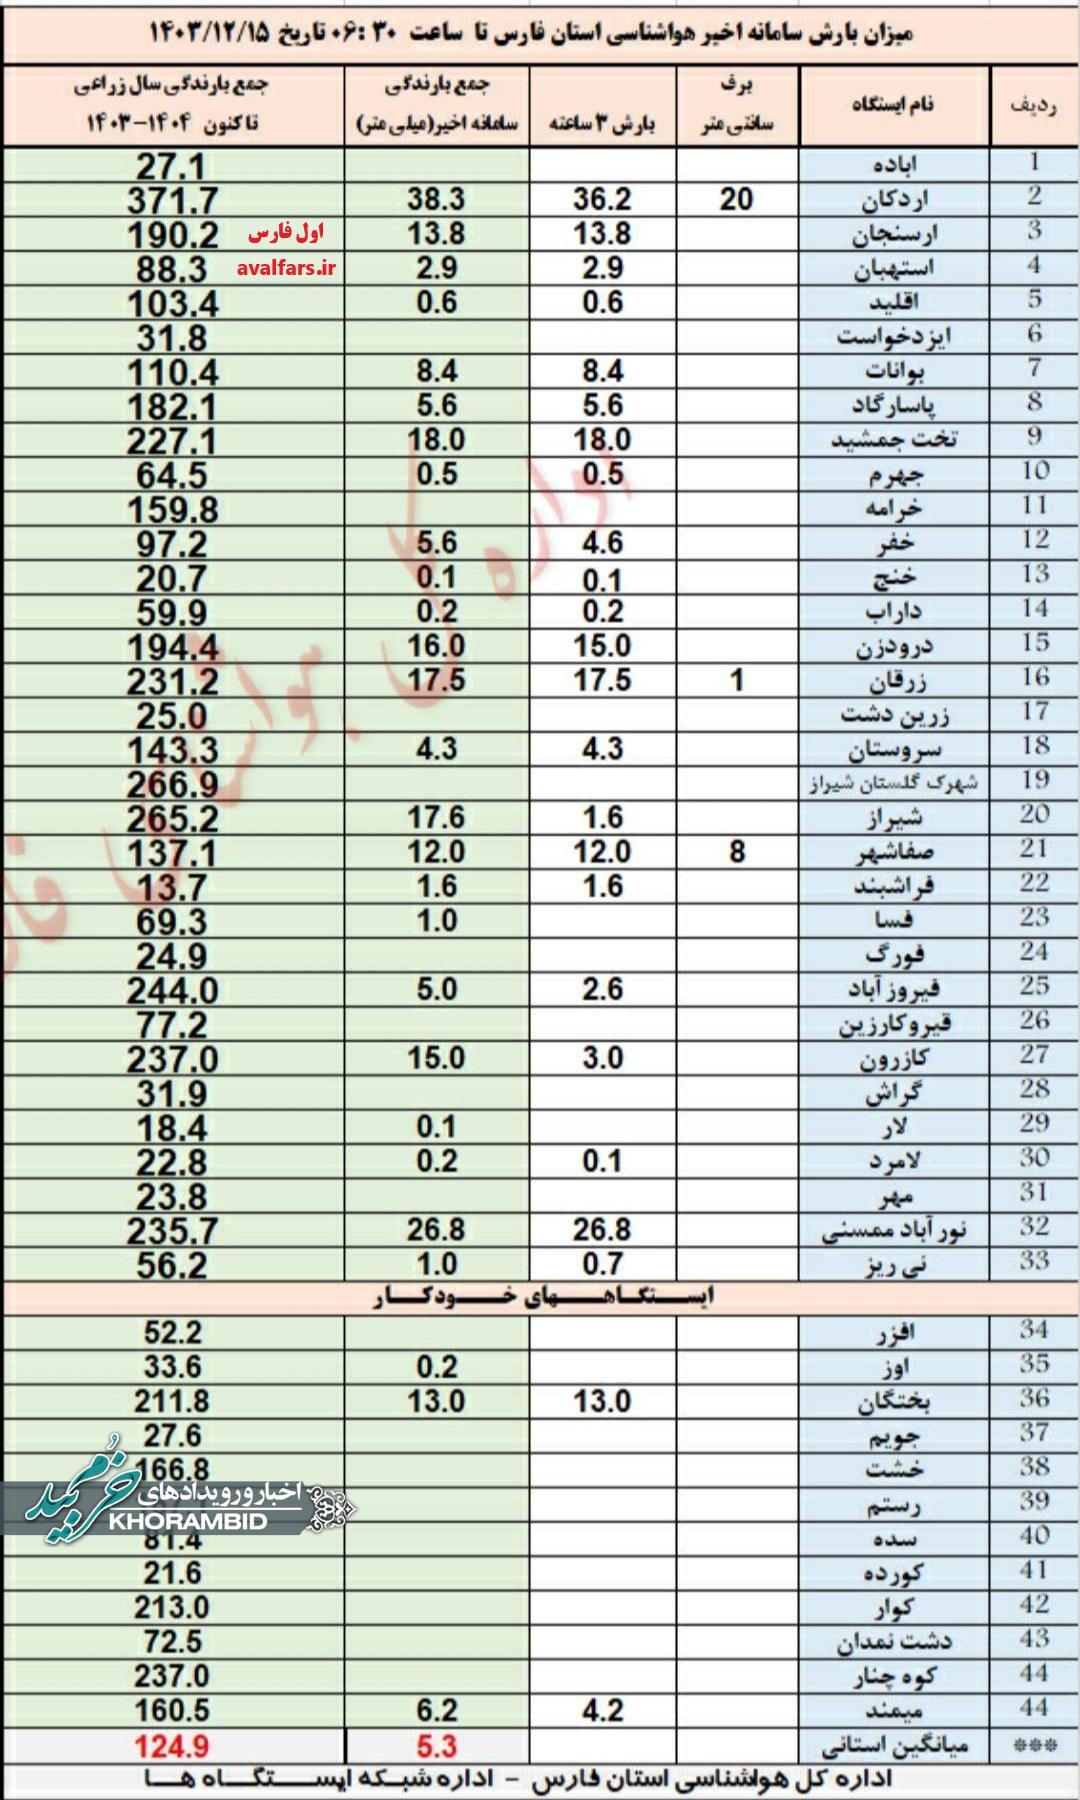 میزان بارش سامانه اخیر هواشناسی استان فارس تا ساعت ۳۰ :۰۶ تاریخ ۱۴۰۳/۱۲/۱۵
ردیف نام ایستگاه برف سانتی متر بارش ۳ ساعته جمع بارندگی سامانه اخیر(میلی متر) جمع بارندگی سال زراعی تاکنون ۱۴۰۴-۱۴۰۳
1 اباده 27.1
2 اردکان 20 36.2 38.3 371.7
3 ارسنجان 13.8 13.8 190.2
اول فارس
4 استهبان 2.9 2.9 88.3
avalfars.ir
5 اقلید 0.6 0.6 103.4
6 ایزدخواست 31.8
7 بوانات 8.4 8.4 110.4
8 پاسارگاد 5.6 5.6 182.1
9 تخت جمشید 18.0 18.0 227.1
10 جهرم 0.5 0.5 64.5
11 خرامه 159.8
12 خفر 4.6 5.6 97.2
13 خنج 0.1 0.1 20.7
14 داراب 0.2 0.2 59.9
15 درودزن 15.0 16.0 194.4
16 زرقان 1 17.5 17.5 231.2
17 زرین دشت 25.0
18 سروستان 4.3 4.3 143.3
19 شهرک گلستان شیراز 266.9
20 شیراز 1.6 17.6 265.2
21 صفاشهر 8 12.0 12.0 137.1
22 فراشبند 1.6 1.6 13.7
23 فسا 1.0 69.3
24 فورگ 24.9
25 فیروزآباد 2.6 5.0 244.0
26 قیروکارزین 77.2
27 کازرون 3.0 15.0 237.0
28 گراش 31.9
29 لار 0.1 18.4
30 لامرد 0.1 0.2 22.8
31 مهر 23.8
32 نورآباد ممسنی 26.8 26.8 235.7
33 نی ریز 0.7 1.0 56.2
ایستگاههای خودکار
34 افزر 52.2
35 اوز 0.2 33.6
36 بختگان 13.0 13.0 211.8
37 جویم 27.6
38 خشت 166.8
39 رستم
40 سده 81.4
41 کورده 21.6
42 کوار 213.0
43 دشت نمدان 72.5
44 کوه چنار 237.0
44 میمند 4.2 6.2 160.5
*** میانگین استانی 5.3 124.9
اداره کل هواشناسی استان فارس - اداره شبکه ایستگاه ها
اداره کل هواشناسی فارس
اخبار و رویدادهای
خرم بید
KHORAMBID